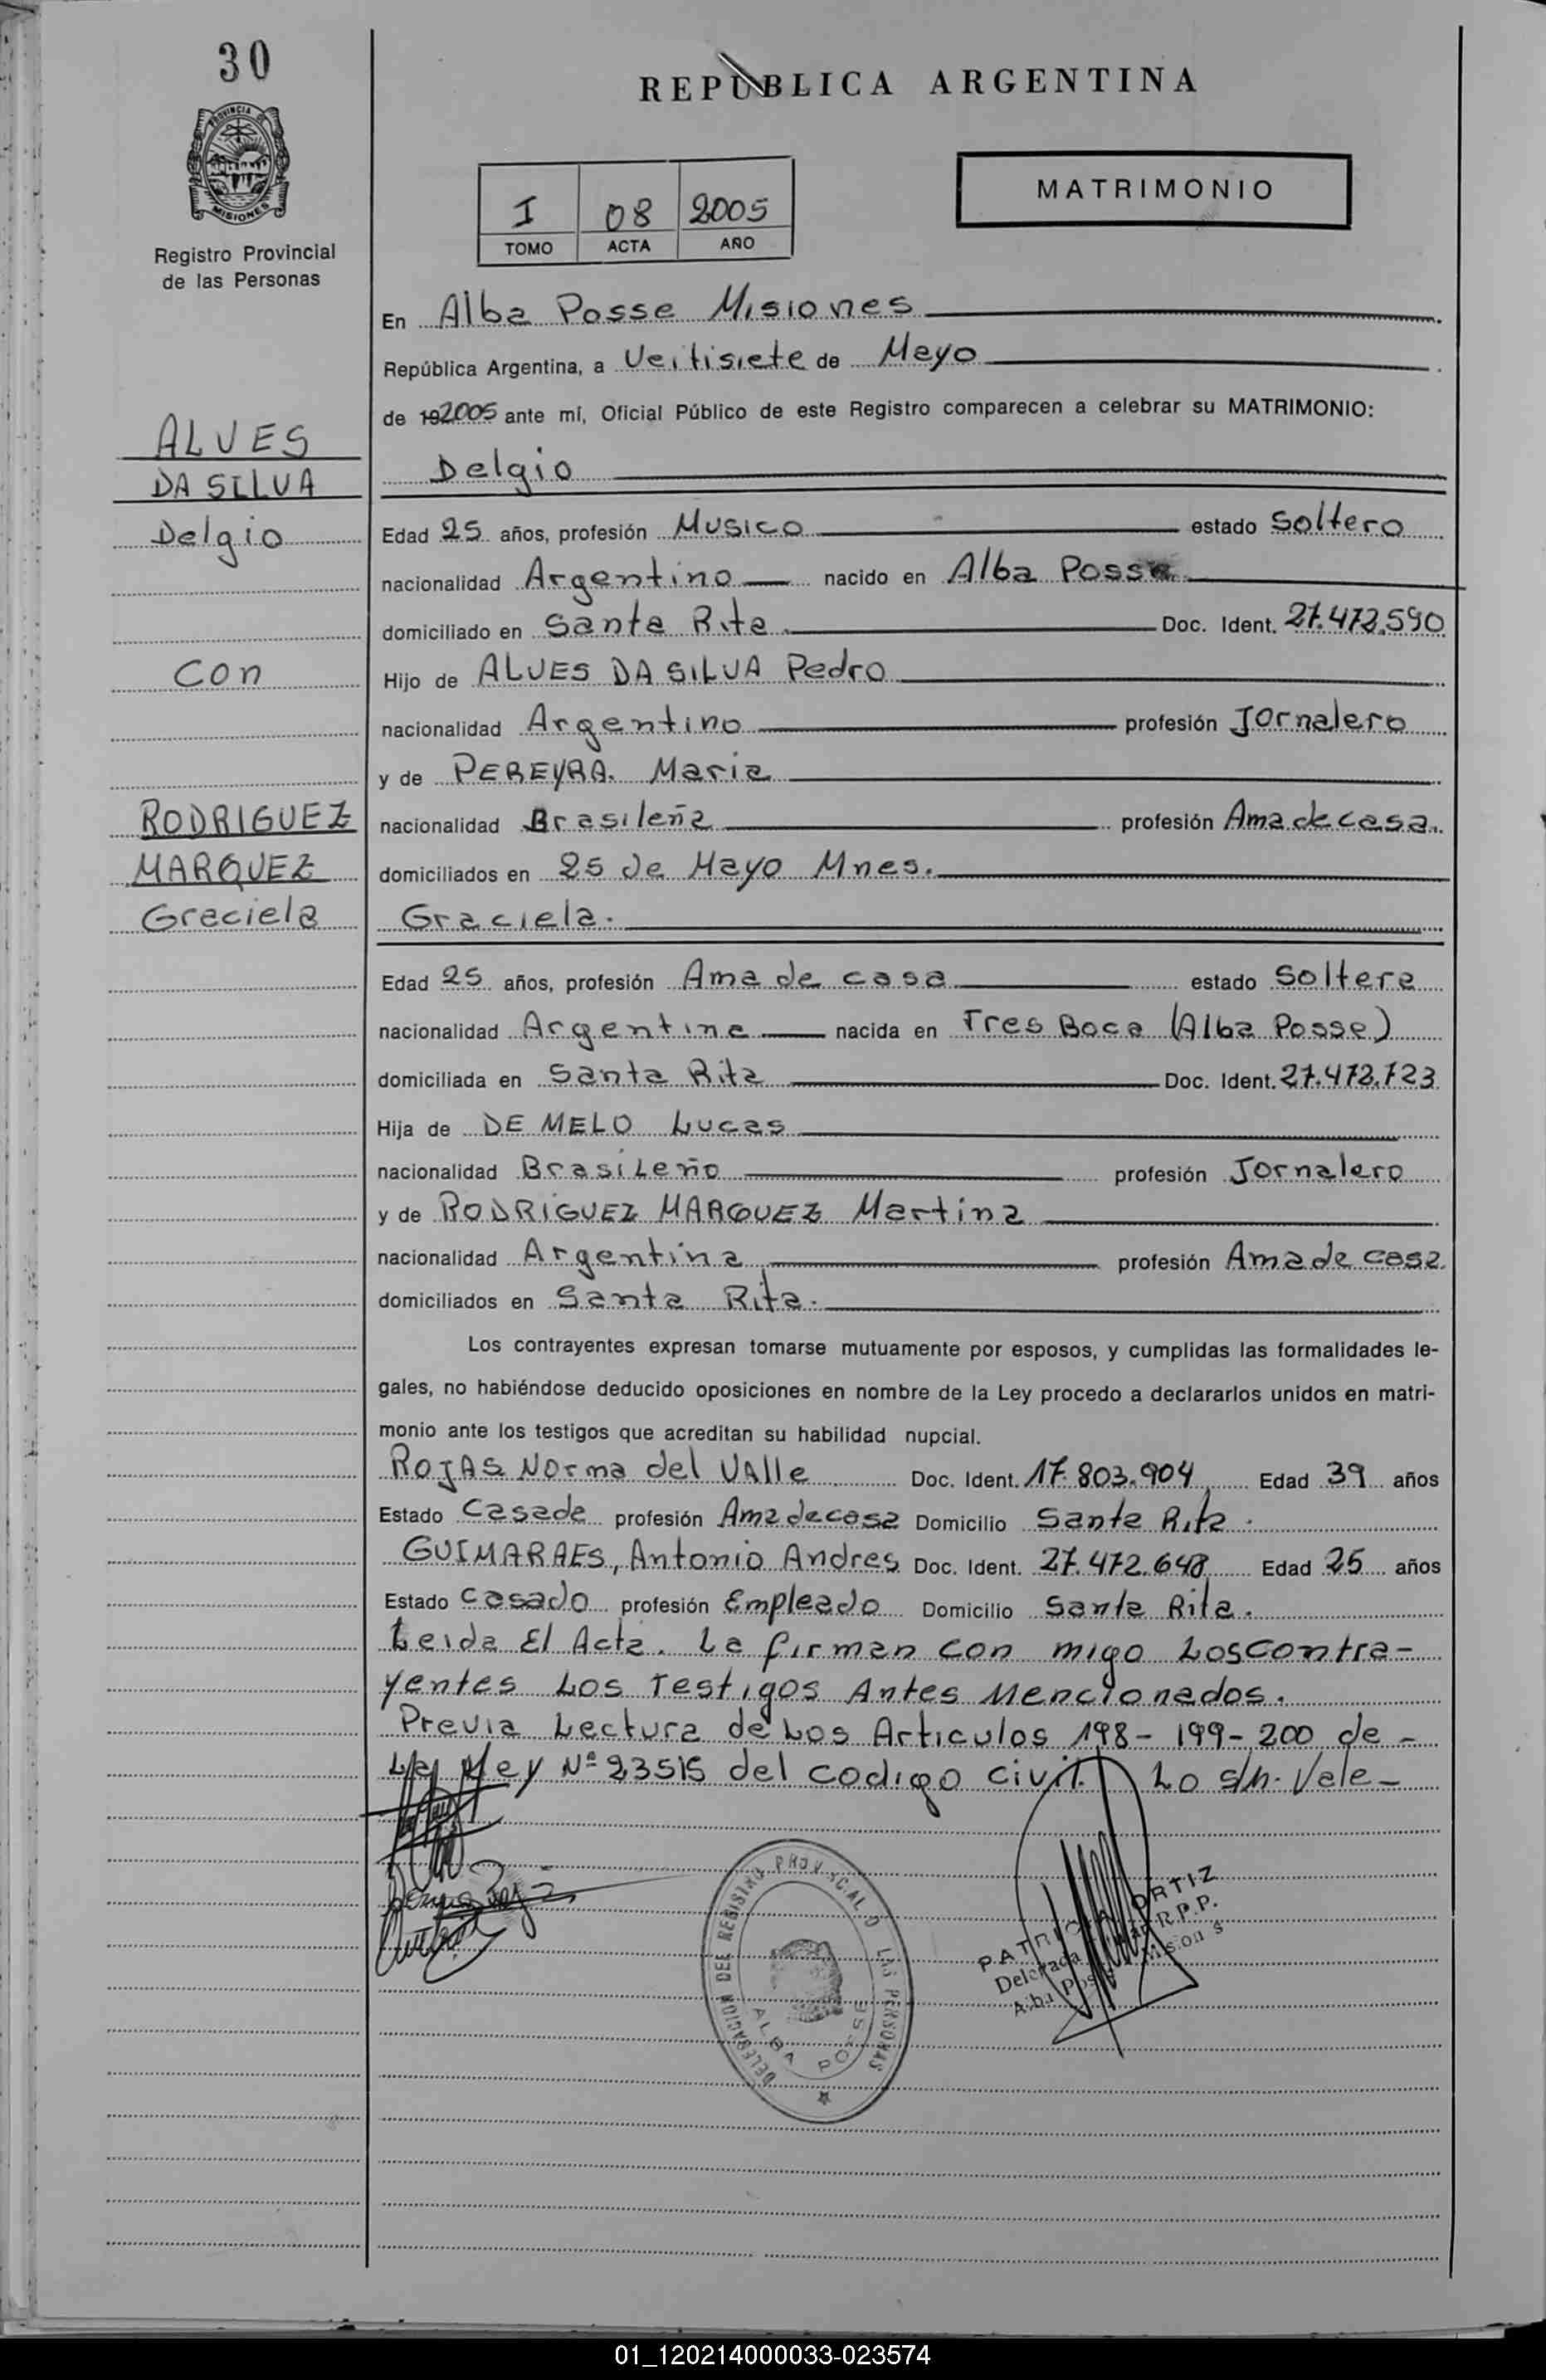 30
REPÚBLICA ARGENTINA
PROVINCIA DE
MISIONES
Registro Provincial
de las Personas
MATRIMONIO
I 08 2005
TOMO ACTA AÑO
En Alba Posse Misiones
República Argentina, a Veitisiete de Mayo
de 192005 ante mí, Oficial Público de este Registro comparecen a celebrar su MATRIMONIO:
ALVES
DA SILVA
Delgio
Con
RODRIGUEZ
MARQUEZ
Graciela
Delgio
Edad 25 años, profesión Musico estado Soltero
nacionalidad Argentino nacido en Alba Posse
domiciliado en Santa Rita. Doc. Ident. 27.472.590
Hijo de ALVES DA SILVA Pedro
nacionalidad Argentino profesión Jornalero
y de PEREYRA. Maria
nacionalidad Brasileña profesión Ama de casa.
domiciliados en 25 de Mayo Mnes.
Graciela.
Edad 25 años, profesión Ama de casa estado Soltera
nacionalidad Argentina nacida en Tres Boca (Alba Posse)
domiciliada en Santa Rita Doc. Ident. 27.472.723
Hija de DE MELO Lucas
nacionalidad Brasileño profesión Jornalero
y de RODRIGUEZ MARQUEZ Martina
nacionalidad Argentina profesión Ama de casa.
domiciliados en Santa Rita.
Los contrayentes expresan tomarse mutuamente por esposos, y cumplidas las formalidades le-
gales, no habiéndose deducido oposiciones en nombre de la Ley procedo a declararlos unidos en matri-
monio ante los testigos que acreditan su habilidad nupcial.
ROJAS Norma del Valle Doc. Ident. 17.803.904 Edad 39 años
Estado Casada profesión Ama de casa Domicilio Santa Rita.
GUIMARAES, Antonio Andres Doc. Ident. 27.472.648 Edad 25 años
Estado Casado profesión Empleado Domicilio Santa Rita.
Leida El Acta. La firman con migo Los contra-
yentes Los Testigos Antes Mencionados.
Previa Lectura de Los Articulos 198-199-200 de-
La Ley Nº 23515 del codigo civil. Lo s/n. Vale-
DELEGACION DEL REGISTRO PROVINCIAL D LAS PERSONAS
ALBA POSSE
PATRICIA ORTIZ
Delegada R.P.P.
Alba Posse Misiones
01_120214000033-023574